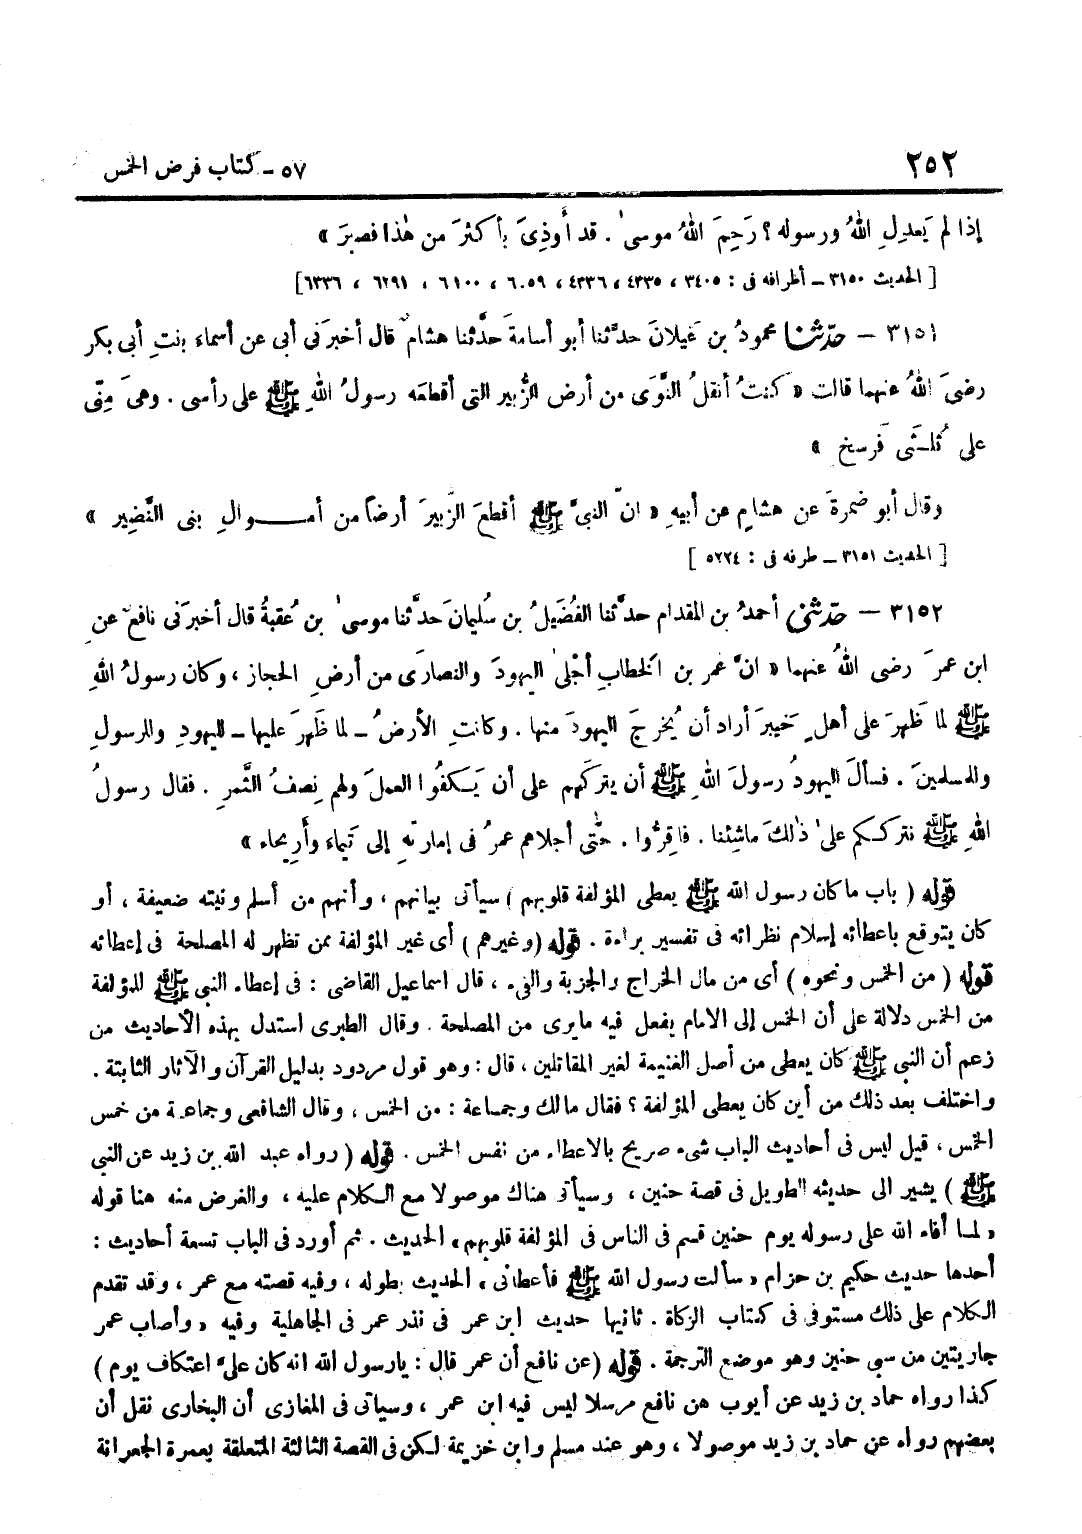 ٢٥٢ ٥٧ - كتاب فرض الخمس
إذا لم يَعدِلِ اللهُ ورسوله ؟ رَحِمَ اللهُ موسىٰ . قد أُوذِىَ بأكثرَ من هٰذا فصبرَ »
[ الحديث ٣١٥٠ ــ أطرافه فى : ٣٤٠٥ ، ٤٣٣٥ ، ٤٣٣٦ ، ٦٠٥٩ ، ٦١٠٠ ، ٦٢٩١ ، ٦٣٣٦ ]
٣١٥١ — حدّثنا محمودُ بن غَيلانَ حدَّثنا أبو أسامةَ حدَّثنا هشامٌ قال أخبرَنى أبى عن أسماءَ بنتِ أبى بكر
رضىَ اللهُ عنهما قالت « كنتُ أنقلُ النَّوَى من أرض الزُّبير التى أقطعَه رسولُ اللهِ ﷺ على رأسى . وهىَ مِنّى
على ثُلـثَى فَرسخ »
وقال أبو ضمرةَ عن هشامٍ عن أبيهِ « انّ النبىَّ ﷺ أقطعَ الزُّبيرَ أرضاً من أمـــوالِ بنى النَّضِير »
[ الحديث ٣١٥١ ــ طرفه فى : ٥٢٢٤ ]
٣١٥٢ — حدّثنى أحمدُ بن المقدام حدَّثنا الفُضَيلُ بن سُليمانَ حدَّثنا موسىٰ بن عُقبةُ قال أخبرَنى نافعٌ عنِ
ابن عمرَ رضى اللهُ عنهما « انَّ عمرَ بن الخطابِ أجْلىٰ اليهودَ والنصارَى من أرضِ الحجاز ، وكان رسولُ اللهِ
ﷺ لما ظَهرَ على أهلِ خَيبرَ أراد أن يُخرِجَ اليهودَ منها . وكانتِ الأرضُ ــ لما ظَهرَ عليها ــ لليهودِ وللرسولِ
وللمسلمينَ . فسألَ اليهودُ رسولَ اللهِ ﷺ أن يتركهم على أن يَـكفُوا العملَ ولهم نِصفُ الثَّمرِ . فقال رسولُ
اللهِ ﷺ نتركـكم علىٰ ذٰلكَ ماشِئنا . فأقِرُّوا . حتّى أجلاهم عمرُ فى إمارتهِ إلى تَيماءَ وأَرِيحاء »
قوله ( باب ما كان رسول الله ﷺ يعطى المؤلفة قلوبهم ) سيأتى بيانهم ، وأنهم من أسلم ونيته ضعيفة ، أو
كان يتوقع باعطائه إسلام نظرائه فى تفسير براءة . قوله ( وغيرهم ) أى غير المؤلفة ممن تظهر له المصلحة فى إعطائه
قوله ( من الخمس ونحوه ) أى من مال الخراج والجزية والفىء ، قال اسماعيل القاضى : فى إعطاء النبى ﷺ للمؤلفة
من الخمس دلالة على أن الخمس إلى الامام يفعل فيه ما يرى من المصلحة . وقال الطبرى استدل بهذه الأحاديث من
زعم أن النبى ﷺ كان يعطى من أصل الغنيمة لغير المقاتلين ، قال : وهو قول مردود بدليل القرآن والآثار الثابتة .
واختلف بعد ذلك من أين كان يعطى المؤلفة ؟ فقال مالك وجماعة : من الخمس ، وقال الشافعى وجماعة من خمس
الخمس ، قيل ليس فى أحاديث الباب شىء صريح بالاعطاء من نفس الخمس . قوله ( رواه عبد الله بن زيد عن النبى
ﷺ ) يشير الى حديثه الطويل فى قصة حنين ، وسيأتى هناك موصولا مع الـكلام عليه ، والغرض منه هنا قوله
« لمـا أفاء الله على رسوله يوم حنين قسم فى الناس فى المؤلفة قلوبهم » الحديث . ثم أورد فى الباب تسعة أحاديث :
أحدها حديث حكيم بن حزام « سألت رسول الله ﷺ فأعطانى » الحديث بطوله ، وفيه قصته مع عمر ، وقد تقدم
الكلام على ذلك مستوفى فى كتاب الزكاة . ثانيها حديث ابن عمر فى نذر عمر فى الجاهلية وفيه « وأصاب عمر
جاريتين من سبى حنين وهو موضع الترجمة . قوله ( عن نافع أن عمر قال : يارسول الله انه كان علىّ اعتكاف يوم )
كذا رواه حماد بن زيد عن أيوب هن نافع مرسلا ليس فيه ابن عمر ، وسيأتى فى المغازى أن البخارى نقل أن
بعضهم رواه عن حماد بن زيد موصولا ، وهو عند مسلم وابن خزيمة لـكن فى القصة الثالثة المتعلقة بعمرة الجعرانة